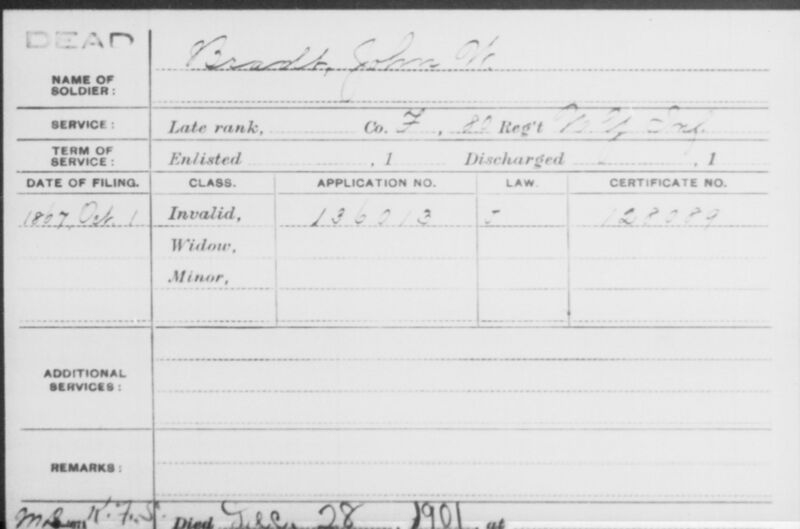 DEAD
NAME OF SOLDIER: Bradt, John W.
SERVICE: Late rank, Co. F, 80 Reg't N.Y. Inf.
TERM OF SERVICE: Enlisted , 1 Discharged , 1
DATE OF FILING. CLASS. APPLICATION NO. LAW. CERTIFICATE NO.
1867, Oct. 1 Invalid, 136013 128089
Widow,
Minor,
ADDITIONAL SERVICES:
REMARKS:
K.F.S. Died Dec. 28, 1901, at